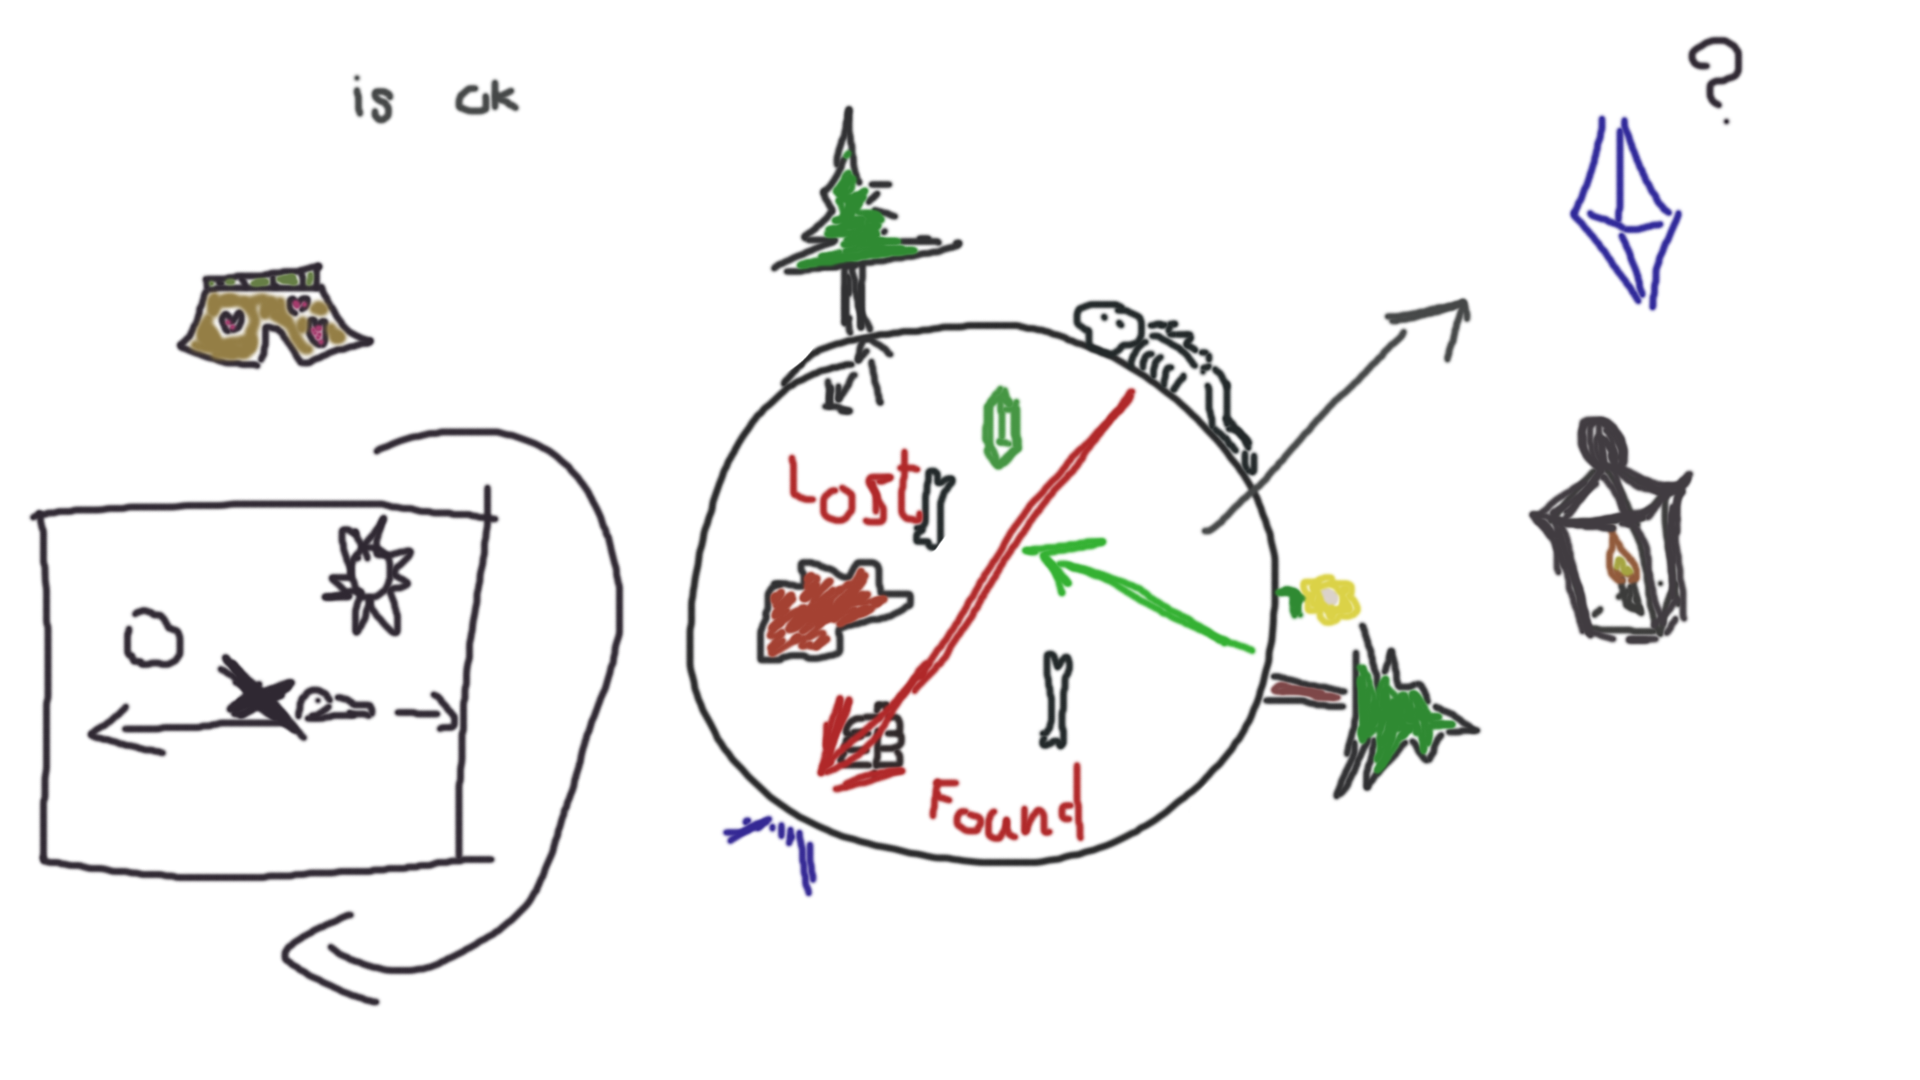 is ak
?
Lost
Found